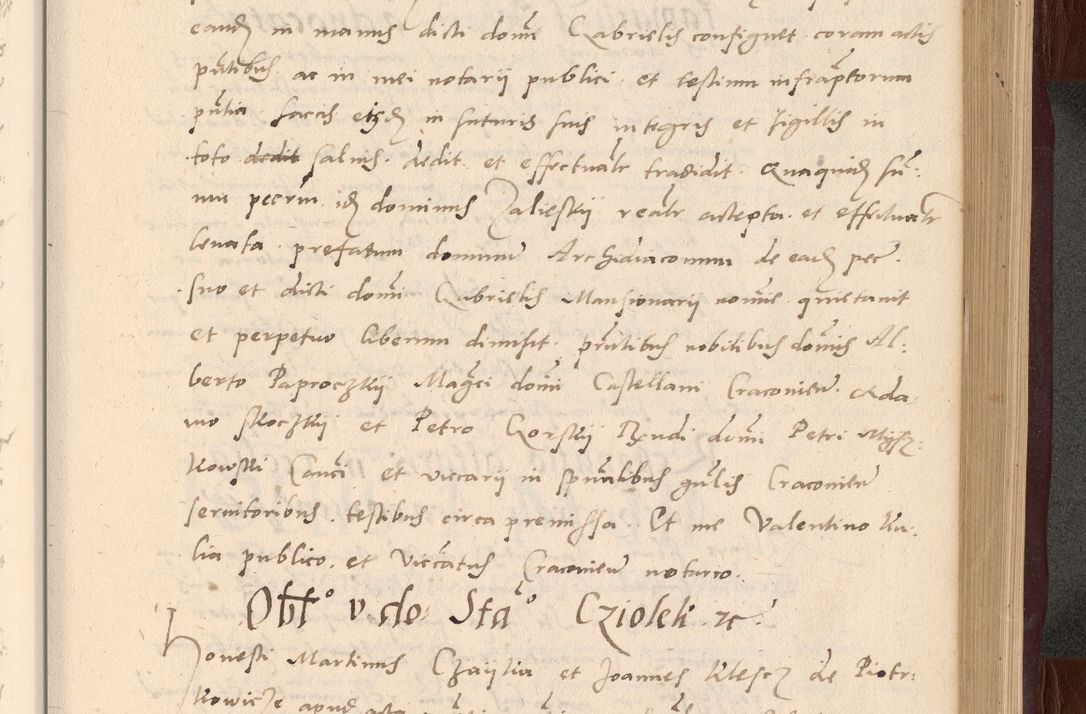 eand in manus dicti domi Gabrielis consignet coram actis
pntibus ac in mei notarii publici et testium infrascptorum
pntia saccis eisd in suturis suis integris et sigillis in
toto dedit salvis. dedit et effectualr tradidit. Quaquid su:
mm pecrm id dominus Zalieskii realr accepta et effectualr
levata prefatum dominum Archidiaconum de ead pec.
suo et dicti domi Gabrielis Mansionarii nomie quietavit
et perpetuo liberum dimisit. pntibus nobilibus domis Al:
berto Paproczkii Magci domi Castellani Cracovien. Ada
mo Skoczkii et Petro Gorskii Rndi domi Petri Mysz:
kowski Canci et vicarii in spualibus gnlis Cracovien
servitoribus. testibus circa premissa. Et me Valentino Ku:
lia publico. et Viccatus Cracovien notario.
Obto v. do Stao Cziolek zc
Honesti Martinus Czaijlia et Joannes Klesz de Piotr:
kowicze apud acta